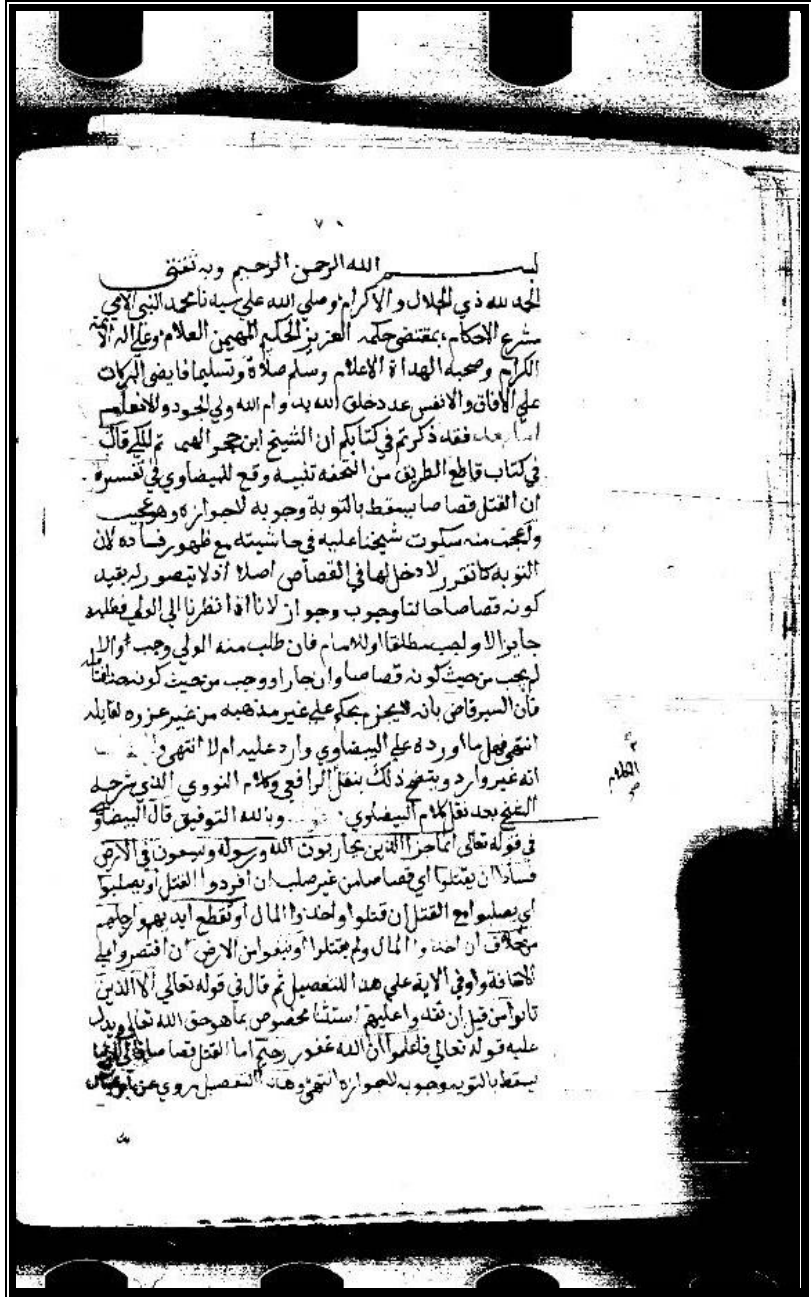 ٧
بســـــم الله الرحمن الرحيم وبه ثقتي
الحمد لله ذي الجلال والاكرام وصلي الله علي سيدنا محمد النبي الامي
مشرع الاحكام بمقتضي حكمه العزيز الحكيم المهيمن العلام وعلي اله الائمة
الكرام وصحبه الهداة الاعلام وسلم صلاة وتسليما فايضي البركات
علي الافاق والانفس عدد خلق الله بدوام الله ولي الجود والانعام
اما بعد فقد ذكرتم في كتابكم ان الشيخ ابن حجر الهيتمي ثم المكي قال
في كتاب قاطع الطريق من التحفه تنبيه وقع للبيضاوي في تفسيره
ان القتل قصاصا يسقط بالتوبة وجوبه لا جوازه وهو عجيب
واعجب منه سكوت شيخنا عليه في حاشيته مع ظهور فساده لان
التوبه كما تقرر لا دخل لها في القصاص اصلا اذ لا يتصور له بقيد
كونه قصاصا حالتا وجوب وجواز لانا اذا نظرنا الي الولي فطلبه
جايز لا واجب مطلقا او للامام فان طلب منه الولي وجب والا
لم يجب من حيث كونه قصاصا وان جاز او وجب من حيث كونه حدا فتامله
فان السير قاضي بانه لم يجزم بحكم علي غير مذهبه من غير عزوه لقايله
انتهي فهل ما اورده علي البيضاوي وارد عليه ام لا انتهي
انه غير وارد ويتضح ذلك بنقل الرافعي وكلام النووي الذي شرحه
الشيخ بعد نقل كلام البيضاوي وبالله التوفيق قال البيضاوي
في قوله تعالي انما جزا الذين يحاربون الله ورسوله ويسعون في الارض
فسادا ان يقتلوا اي قصاصا من غير صلب ان افردوا القتل او يصلبوا
اي يصلبوا مع القتل ان قتلوا واخذوا المال او تقطع ايديهم وارجلهم
من خلاف ان اخذوا المال ولم يقتلوا او ينفوا من الارض ان اقتصروا علي
الاخافة واو في الاية علي هذا للتفصيل ثم قال في قوله تعالي الا الذين
تابوا من قبل ان تقدروا عليهم استثنا مخصوص بما هو حق الله تعالي ويدل
عليه قوله تعالي فاعلموا ان الله غفور رحيم اما القتل قصاصا
يسقط بالتوبه وجوبه لا جوازه انتهي وهذا التفصيل مروي عن ابن عباس
الكلام